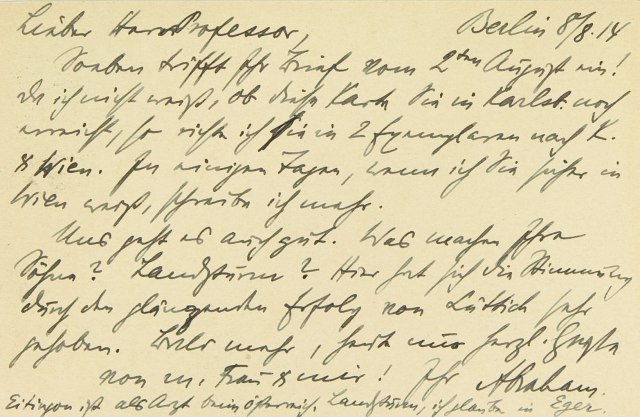 Lieber Herr Professor, Berlin 8/8.14
Soeben trifft Ihr Brief vom 2ten August ein!
Da ich nicht weiß, ob diese Karte Sie in Karlsb. noch
erreicht, so richte ich sie in 2 Exemplaren nach K.
& Wien. In einigen Tagen, wenn ich Sie sicher in
Wien weiß, schreibe ich mehr.
Uns geht es auch gut. Was machen Ihre
Söhne? Landsturm? Hier hat sich die Stimmung
durch den glänzenden Erfolg von Lüttich sehr
gehoben. Bald mehr, heute nur herzl. Grüße
von m. Frau & mir! Ihr Abraham.
Eitingon ist als Arzt beim österreich. Landsturm, ich glaube in Eger.